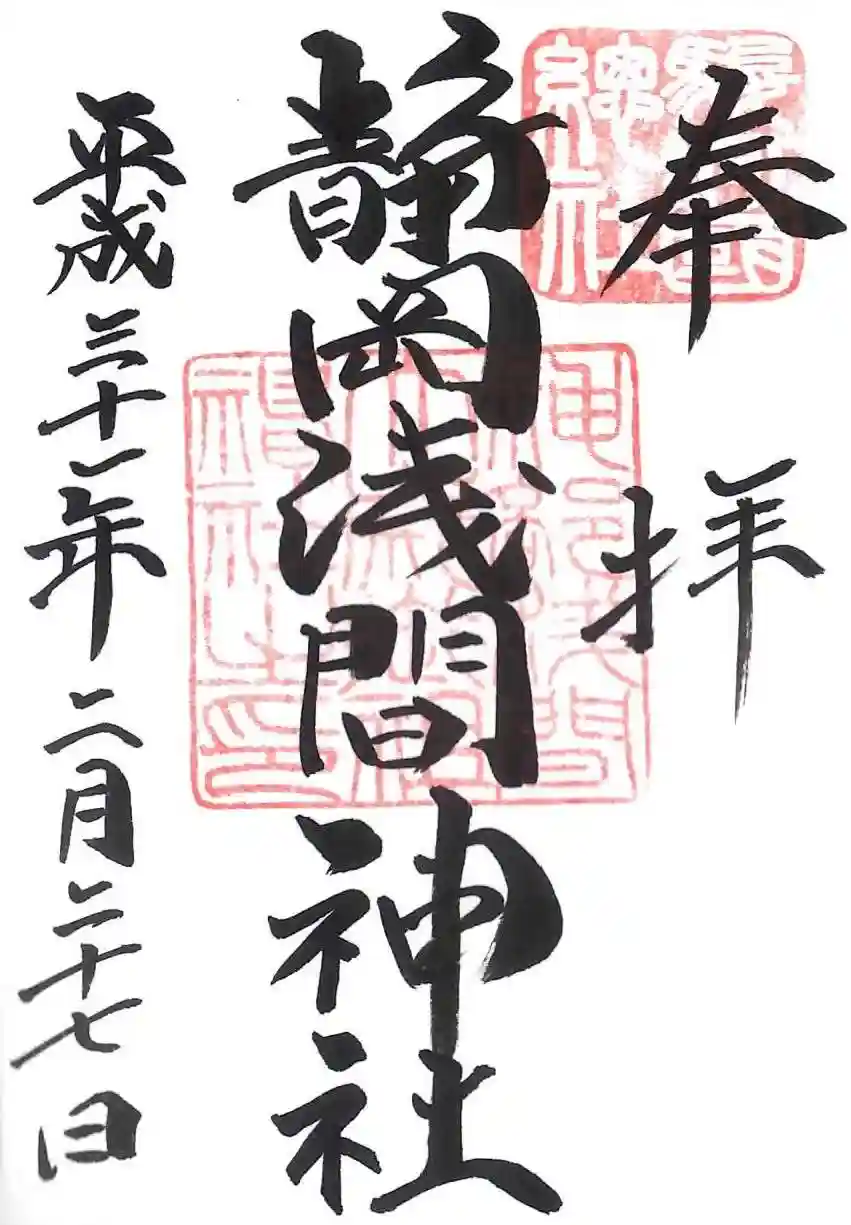 奉拝
静岡浅間神社
平成三十一年二月二十七日
駿河總社